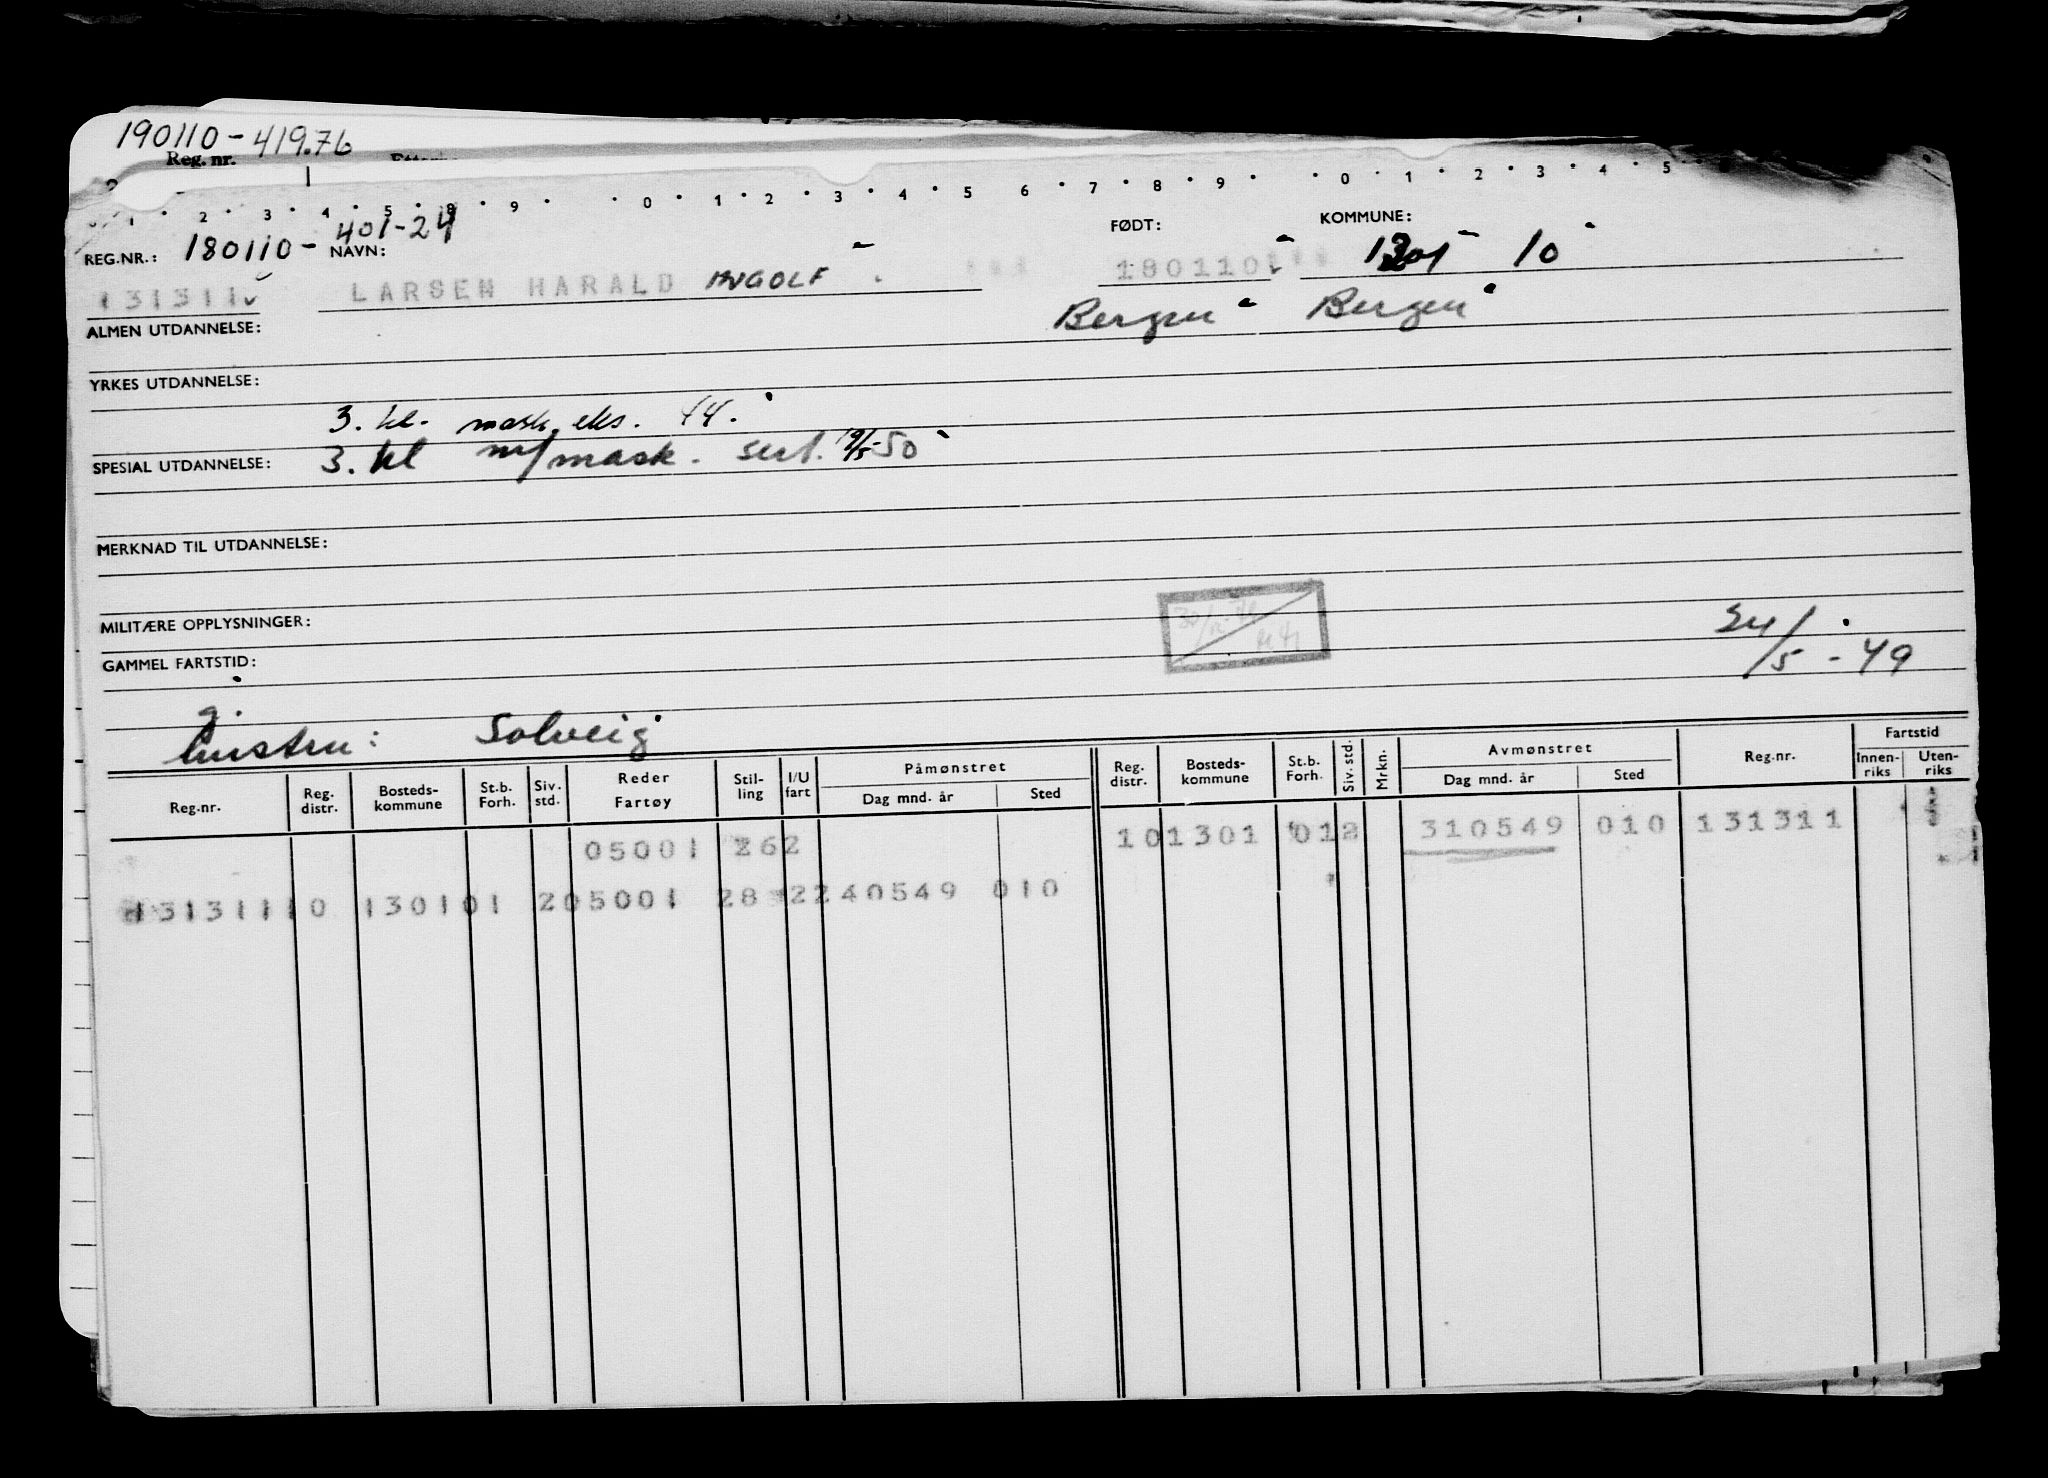 190110-419.76
Reg. nr.
1 2 3 4 5 8 9 0 1 2 3 4 5 6 7 8 9 0 1 2 3 4 5
REG.NR.: 180110-401-24 NAVN: FØDT: KOMMUNE: 1301 10
131311 LARSEN HARALD INGOLF 180110
ALMEN UTDANNELSE: Bergen Bergen
YRKES UTDANNELSE:
3. kl. mask. eks. 44.
SPESIAL UTDANNELSE: 3. kl m/mask. sert. 19/5-50
MERKNAD TIL UTDANNELSE:
MILITÆRE OPPLYSNINGER:
GAMMEL FARTSTID: 24/5-49
g.
hustru: Solveig
Reg.nr. Reg. distr. Bosteds-kommune St.b. Forh. Siv. std. Reder Fartøy Stil-ling I/U fart Påmønstret Dag mnd. år Sted Reg. distr. Bosteds-kommune St.b. Forh. Siv. std. Mrkn. Avmønstret Dag mnd. år Sted Reg.nr. Fartstid Innen-riks Uten-riks
05001 262 10 1301 01 2 310549 010 131311
131311 10 1301 01 2 05001 28 2 240549 010